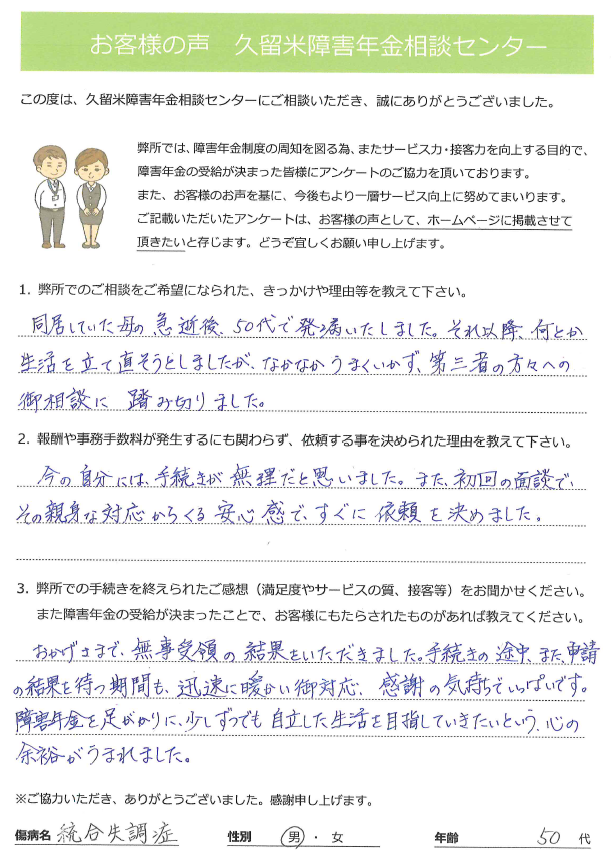 お客様の声　久留米障害年金相談センター
この度は、久留米障害年金相談センターにご相談いただき、誠にありがとうございました。
弊所では、障害年金制度の周知を図る為、またサービス力・接客力を向上する目的で、
障害年金の受給が決まった皆様にアンケートのご協力を頂いております。
また、お客様のお声を基に、今後もより一層サービス向上に努めてまいります。
ご記載いただいたアンケートは、お客様の声として、ホームページに掲載させて
頂きたいと存じます。どうぞ宜しくお願い申し上げます。
1. 弊所でのご相談をご希望になられた、きっかけや理由等を教えて下さい。
同居していた母の急逝後、50代で発病いたしました。それ以降、何とか
生活を立て直そうとしましたが、なかなかうまくいかず、第三者の方々への
御相談に　踏み切りました。
2. 報酬や事務手数料が発生するにも関わらず、依頼する事を決められた理由を教えて下さい。
今の自分には、手続きが無理だと思いました。また、初回の面談で、
その親身な対応からくる安心感で、すぐに依頼を決めました。
3. 弊所での手続きを終えられたご感想（満足度やサービスの質、接客等）をお聞かせください。
また障害年金の受給が決まったことで、お客様にもたらされたものがあれば教えてください。
おかげさまで、無事受領の結果をいただきました。手続きの途中、また、申請
の結果を待つ期間も、迅速に暖かい御対応、感謝の気持ちでいっぱいです。
障害年金を足がかりに、少しずつでも自立した生活を目指していきたいという、心の
余裕がうまれました。
※ご協力いただき、ありがとうございました。感謝申し上げます。
傷病名 統合失調症　性別　男・女　年齢　50 代